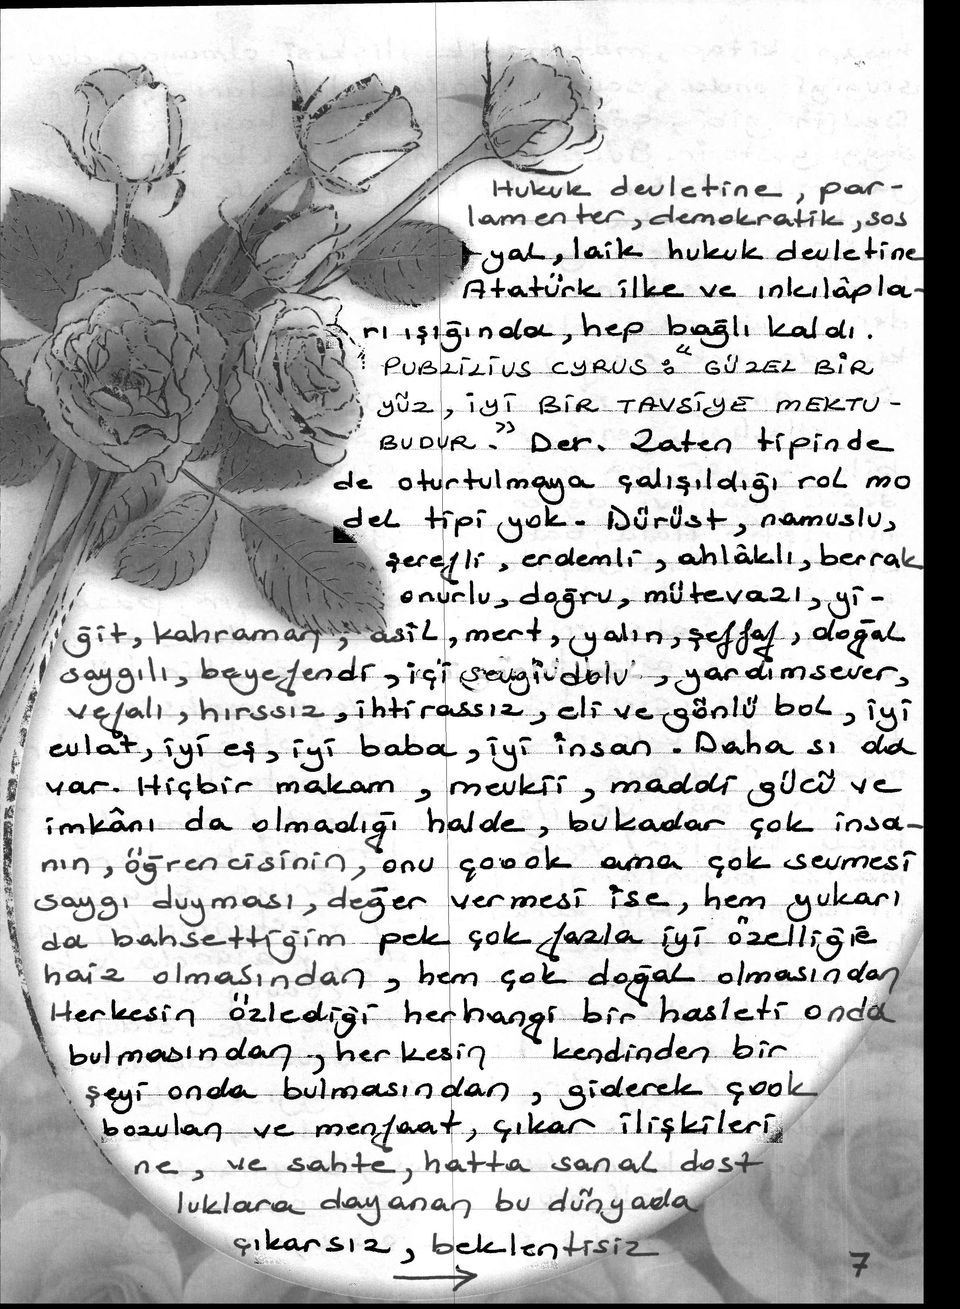 Hukuk devletine, par-
lamenter, demokratik, sos
yal, laik hukuk devletine
Atatürk ilke ve inkılâpla-
rı ışığında, hep bağlı kaldı.
PUBLİLİUS CYRUS : "GÜZEL BİR
YÜZ, İYİ BİR TAVSİYE MEKTU-
BUDUR." Der. Zaten tipinde
de oturtulmaya çalışıldığı rol mo
del tipi yok. Dürüst, namuslu,
şerefli, erdemli, ahlâklı, berrak
onurlu, doğru, mütevazı, yi-
ğit, kahraman, asil, mert, yalın, şeffaf, doğal
saygılı, beyefendi, içi sevgi dolu, yardımsever,
vefalı, hırssız, ihtirassız, eli ve gönlü bol, iyi
evlat, iyi eş, iyi baba, iyi insan. Daha sı da
var. Hiçbir makam, mevkii, maddi gücü ve
imkânı da olmadığı halde, bukadar çok insa-
nın, öğrencisinin, onu çoook ama çok sevmesi
saygı duyması, değer vermesi ise, hem yukarı
da bahsettiğim pek çok fazla iyi özelliğe
haiz olmasından, hem çok doğal olmasından
Herkesin özlediği herhangi bir hasleti onda
bulmasından, herkesin kendinden bir
şeyi onda bulmasından, giderek çook
bozulan ve menfaat, çıkar ilişkileri
ne, ve sahte, hatta sanal dost
luklara dayanan bu dünyada
çıkarsız, beklentisiz
7